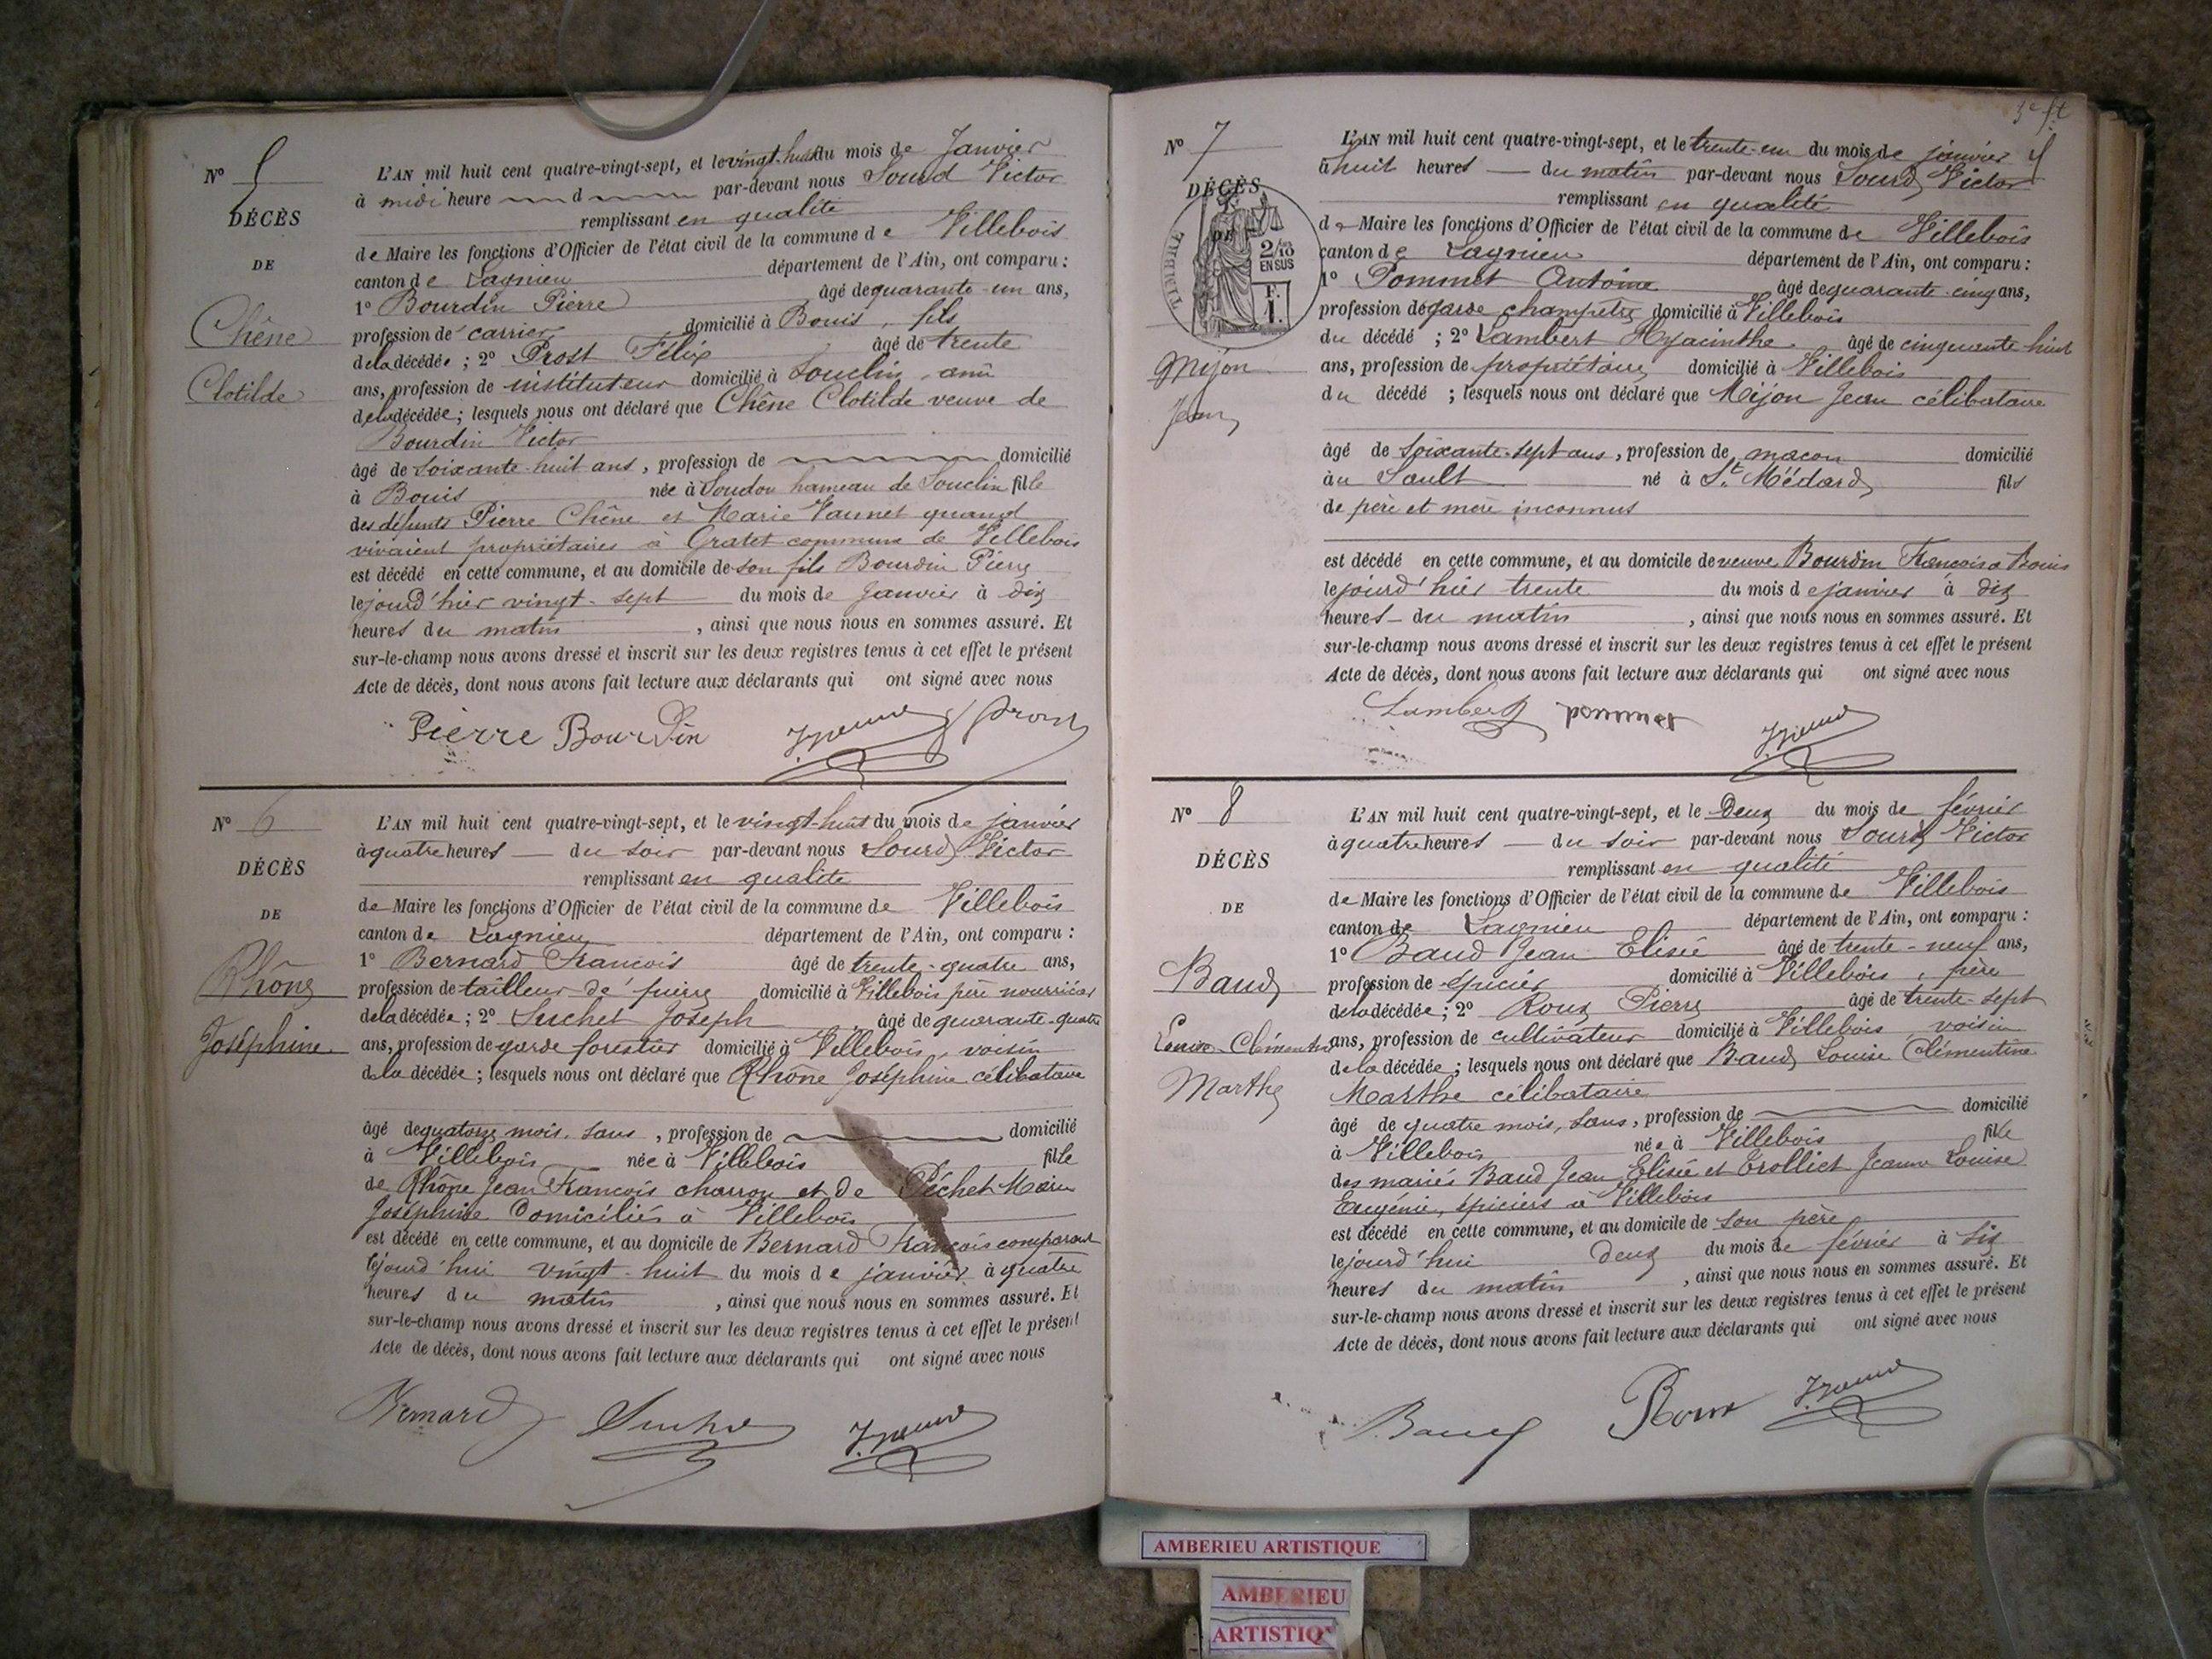 N° 5
DÉCÈS
DE
Chêne
Clotilde
L'AN mil huit cent quatre-vingt-sept, et le vingt-huit du mois de Janvier
à midi heure d par-devant nous Sourd Victor
remplissant en qualité
de Maire les fonctions d'Officier de l'état civil de la commune de Villebois
canton de Lagnieu département de l'Ain, ont comparu :
1° Bourdin Pierre âgé de quarante-un ans,
profession de carrier domicilié à Bouis, fils
de la décédée ; 2° Prost Félix âgé de trente
ans, profession de instituteur domicilié à Souclin, ami
de la décédée ; lesquels nous ont déclaré que Chêne Clotilde veuve de
Bourdin Victor
âgé de soixante-huit ans, profession de domicilié
à Bouis née à Soudon hameau de Souclin fille
des défunts Pierre Chêne et Marie Vannet quand
vivaient propriétaires à Gratet commune de Villebois
est décédé en cette commune, et au domicile de son fils Bourdin Pierre
le jourd'hier vingt-sept du mois de janvier à dix
heures du matin , ainsi que nous nous en sommes assuré. Et
sur-le-champ nous avons dressé et inscrit sur les deux registres tenus à cet effet le présent
Acte de décès, dont nous avons fait lecture aux déclarants qui ont signé avec nous
Pierre Bourdin Prost
N° 6
DÉCÈS
DE
Rhône
Joséphine
L'AN mil huit cent quatre-vingt-sept, et le vingt-huit du mois de janvier
à quatre heures du soir par-devant nous Sourd Victor
remplissant en qualité
de Maire les fonctions d'Officier de l'état civil de la commune de Villebois
canton de Lagnieu département de l'Ain, ont comparu :
1° Bernard François âgé de trente-quatre ans,
profession de tailleur de pierre domicilié à Villebois père nourricier
de la décédée ; 2° Suchet Joseph âgé de quarante-quatre
ans, profession de garde forestier domicilié à Villebois, voisin
de la décédée ; lesquels nous ont déclaré que Rhône Joséphine célibataire
âgé de quatorze mois, sans , profession de domicilié
à Villebois née à Villebois fille
de Rhône Jean François charron et de Péchet Marie
Joséphine domiciliés à Villebois
est décédé en cette commune, et au domicile de Bernard François comparant
le jourd'hui vingt-huit du mois de janvier à quatre
heures du matin , ainsi que nous nous en sommes assuré. Et
sur-le-champ nous avons dressé et inscrit sur les deux registres tenus à cet effet le présent
Acte de décès, dont nous avons fait lecture aux déclarants qui ont signé avec nous
Bernard Suchet
N° 7
DÉCÈS
DE
TIMBRE
2/10
EN SUS
F.
1.
Mijon
Jean
L'AN mil huit cent quatre-vingt-sept, et le trente-un du mois de janvier
à huit heures du matin par-devant nous Sourd Victor
remplissant en qualité
de Maire les fonctions d'Officier de l'état civil de la commune de Villebois
canton de Lagnieu département de l'Ain, ont comparu :
1° Pommet Antoine âgé de quarante-cinq ans,
profession de garde champêtre domicilié à Villebois
du décédé ; 2° Lambert Hyacinthe âgé de cinquante huit
ans, profession de propriétaire domicilié à Villebois
du décédé ; lesquels nous ont déclaré que Mijon Jean célibataire
âgé de soixante-sept ans, profession de macon domicilié
à au Sault né à St Médard fils
de père et mère inconnus
est décédé en cette commune, et au domicile de veuve Bourdin François à Bouis
le jourd'hier trente du mois de janvier à dix
heures du matin , ainsi que nous nous en sommes assuré. Et
sur-le-champ nous avons dressé et inscrit sur les deux registres tenus à cet effet le présent
Acte de décès, dont nous avons fait lecture aux déclarants qui ont signé avec nous
Lambert pommet
N° 8
DÉCÈS
DE
Baud
Louise Clémentine
Marthe
L'AN mil huit cent quatre-vingt-sept, et le Deux du mois de février
à quatre heures du soir par-devant nous Sourd Victor
remplissant en qualité
de Maire les fonctions d'Officier de l'état civil de la commune de Villebois
canton de Lagnieu département de l'Ain, ont comparu :
1° Baud Jean Elisée âgé de trente-neuf ans,
profession de épicier domicilié à Villebois, père
de la décédée ; 2° Roux Pierre âgé de trente-sept
ans, profession de cultivateur domicilié à Villebois, voisin
de la décédée ; lesquels nous ont déclaré que Baud Louise Clémentine
Marthe célibataire
âgé de quatre mois, sans, profession de domicilié
à Villebois née à Villebois fille
des mariés Baud Jean Elisée et Trolliet Jeanne Louise
Eugénie, épiciers à Villebois
est décédé en cette commune, et au domicile de son père
le jourd'hui deux du mois de février à six
heures du matin , ainsi que nous nous en sommes assuré. Et
sur-le-champ nous avons dressé et inscrit sur les deux registres tenus à cet effet le présent
Acte de décès, dont nous avons fait lecture aux déclarants qui ont signé avec nous
Baud Roux
AMBERIEU ARTISTIQUE
AMBERIEU
ARTISTIQ